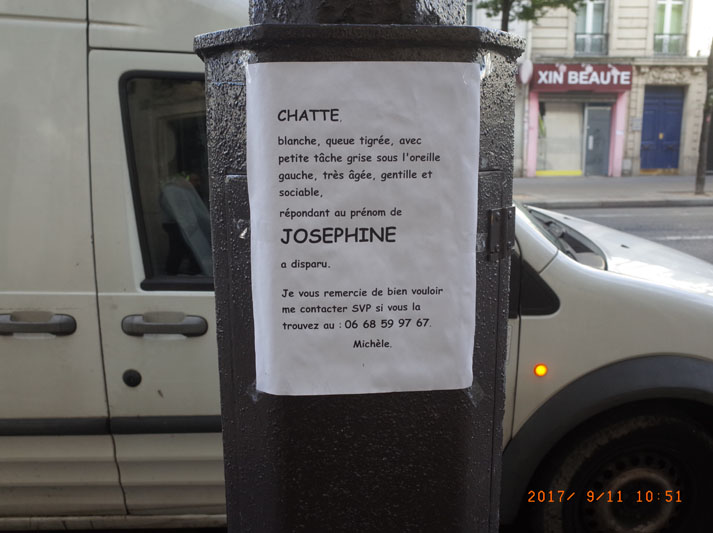 XIN BEAUTE
CHATTE,
blanche, queue tigrée, avec
petite tâche grise sous l'oreille
gauche, très âgée, gentille et
sociable,
répondant au prénom de
JOSEPHINE
a disparu.
Je vous remercie de bien vouloir
me contacter SVP si vous la
trouvez au : 06 68 59 97 67.
Michèle.
2017/ 9/11 10:51